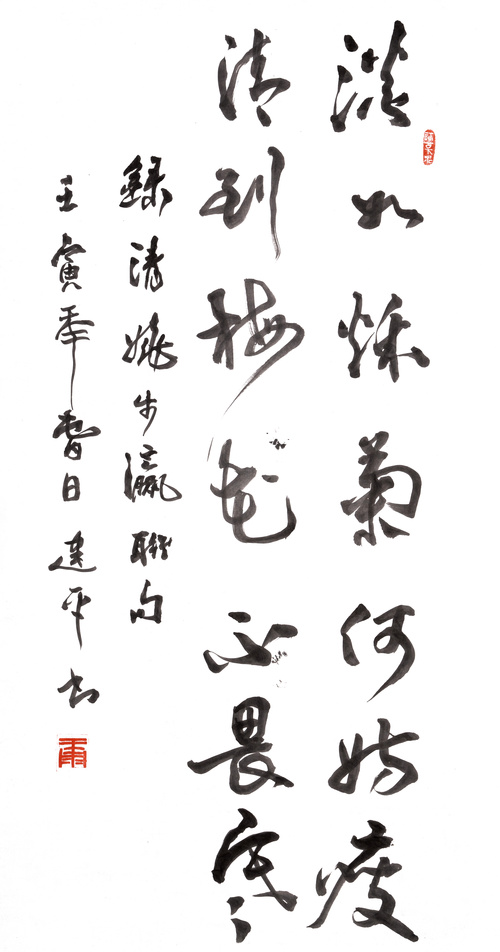 淡如秋菊何妨瘦
清到梅花不畏寒
錄清姚步瀛聯句
壬寅年春日建平书